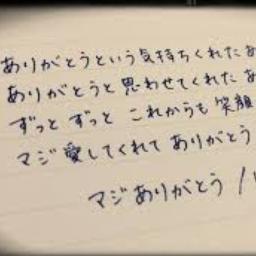 ありがとうという気持ちくれたあ
ありがとうと思わせてくれたあ
ずっと ずっと これからも 笑顔
マジ愛してくれて ありがとう
マジありがとう